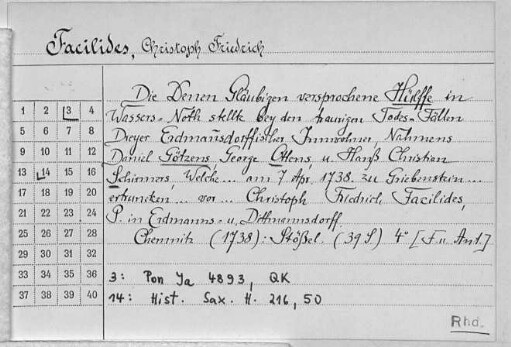 Facilides, Christoph Friedrich
Die Denen Gläubigen versprochene Hülffe in
Wassers-Noth stellte bey den traurigen Todes-Fällen
Dreyer Erdmansdorffischer Innwohner, Nahmens
Daniel Götzens George Ottens u. Hanß Christian
Schirmers, Welche ... am 7 Apr. 1738. zu Griebenstein ...
ertruncken ... vor ... Christoph Friedrich Facilides,
P. in Erdmanns- u. Dettmannsdorff.
Chemnitz (1738): Stößel. (39 S.) 4° [F. u. Ant.]
1 2 3 4
5 6 7 8
9 10 11 12
13 14 15 16
17 18 19 20
21 22 23 24
25 26 27 28
29 30 31 32
33 34 35 36
37 38 39 40
3: Pon Ya 4893, QK
14: Hist. Sax. H. 216, 50
Rhd.